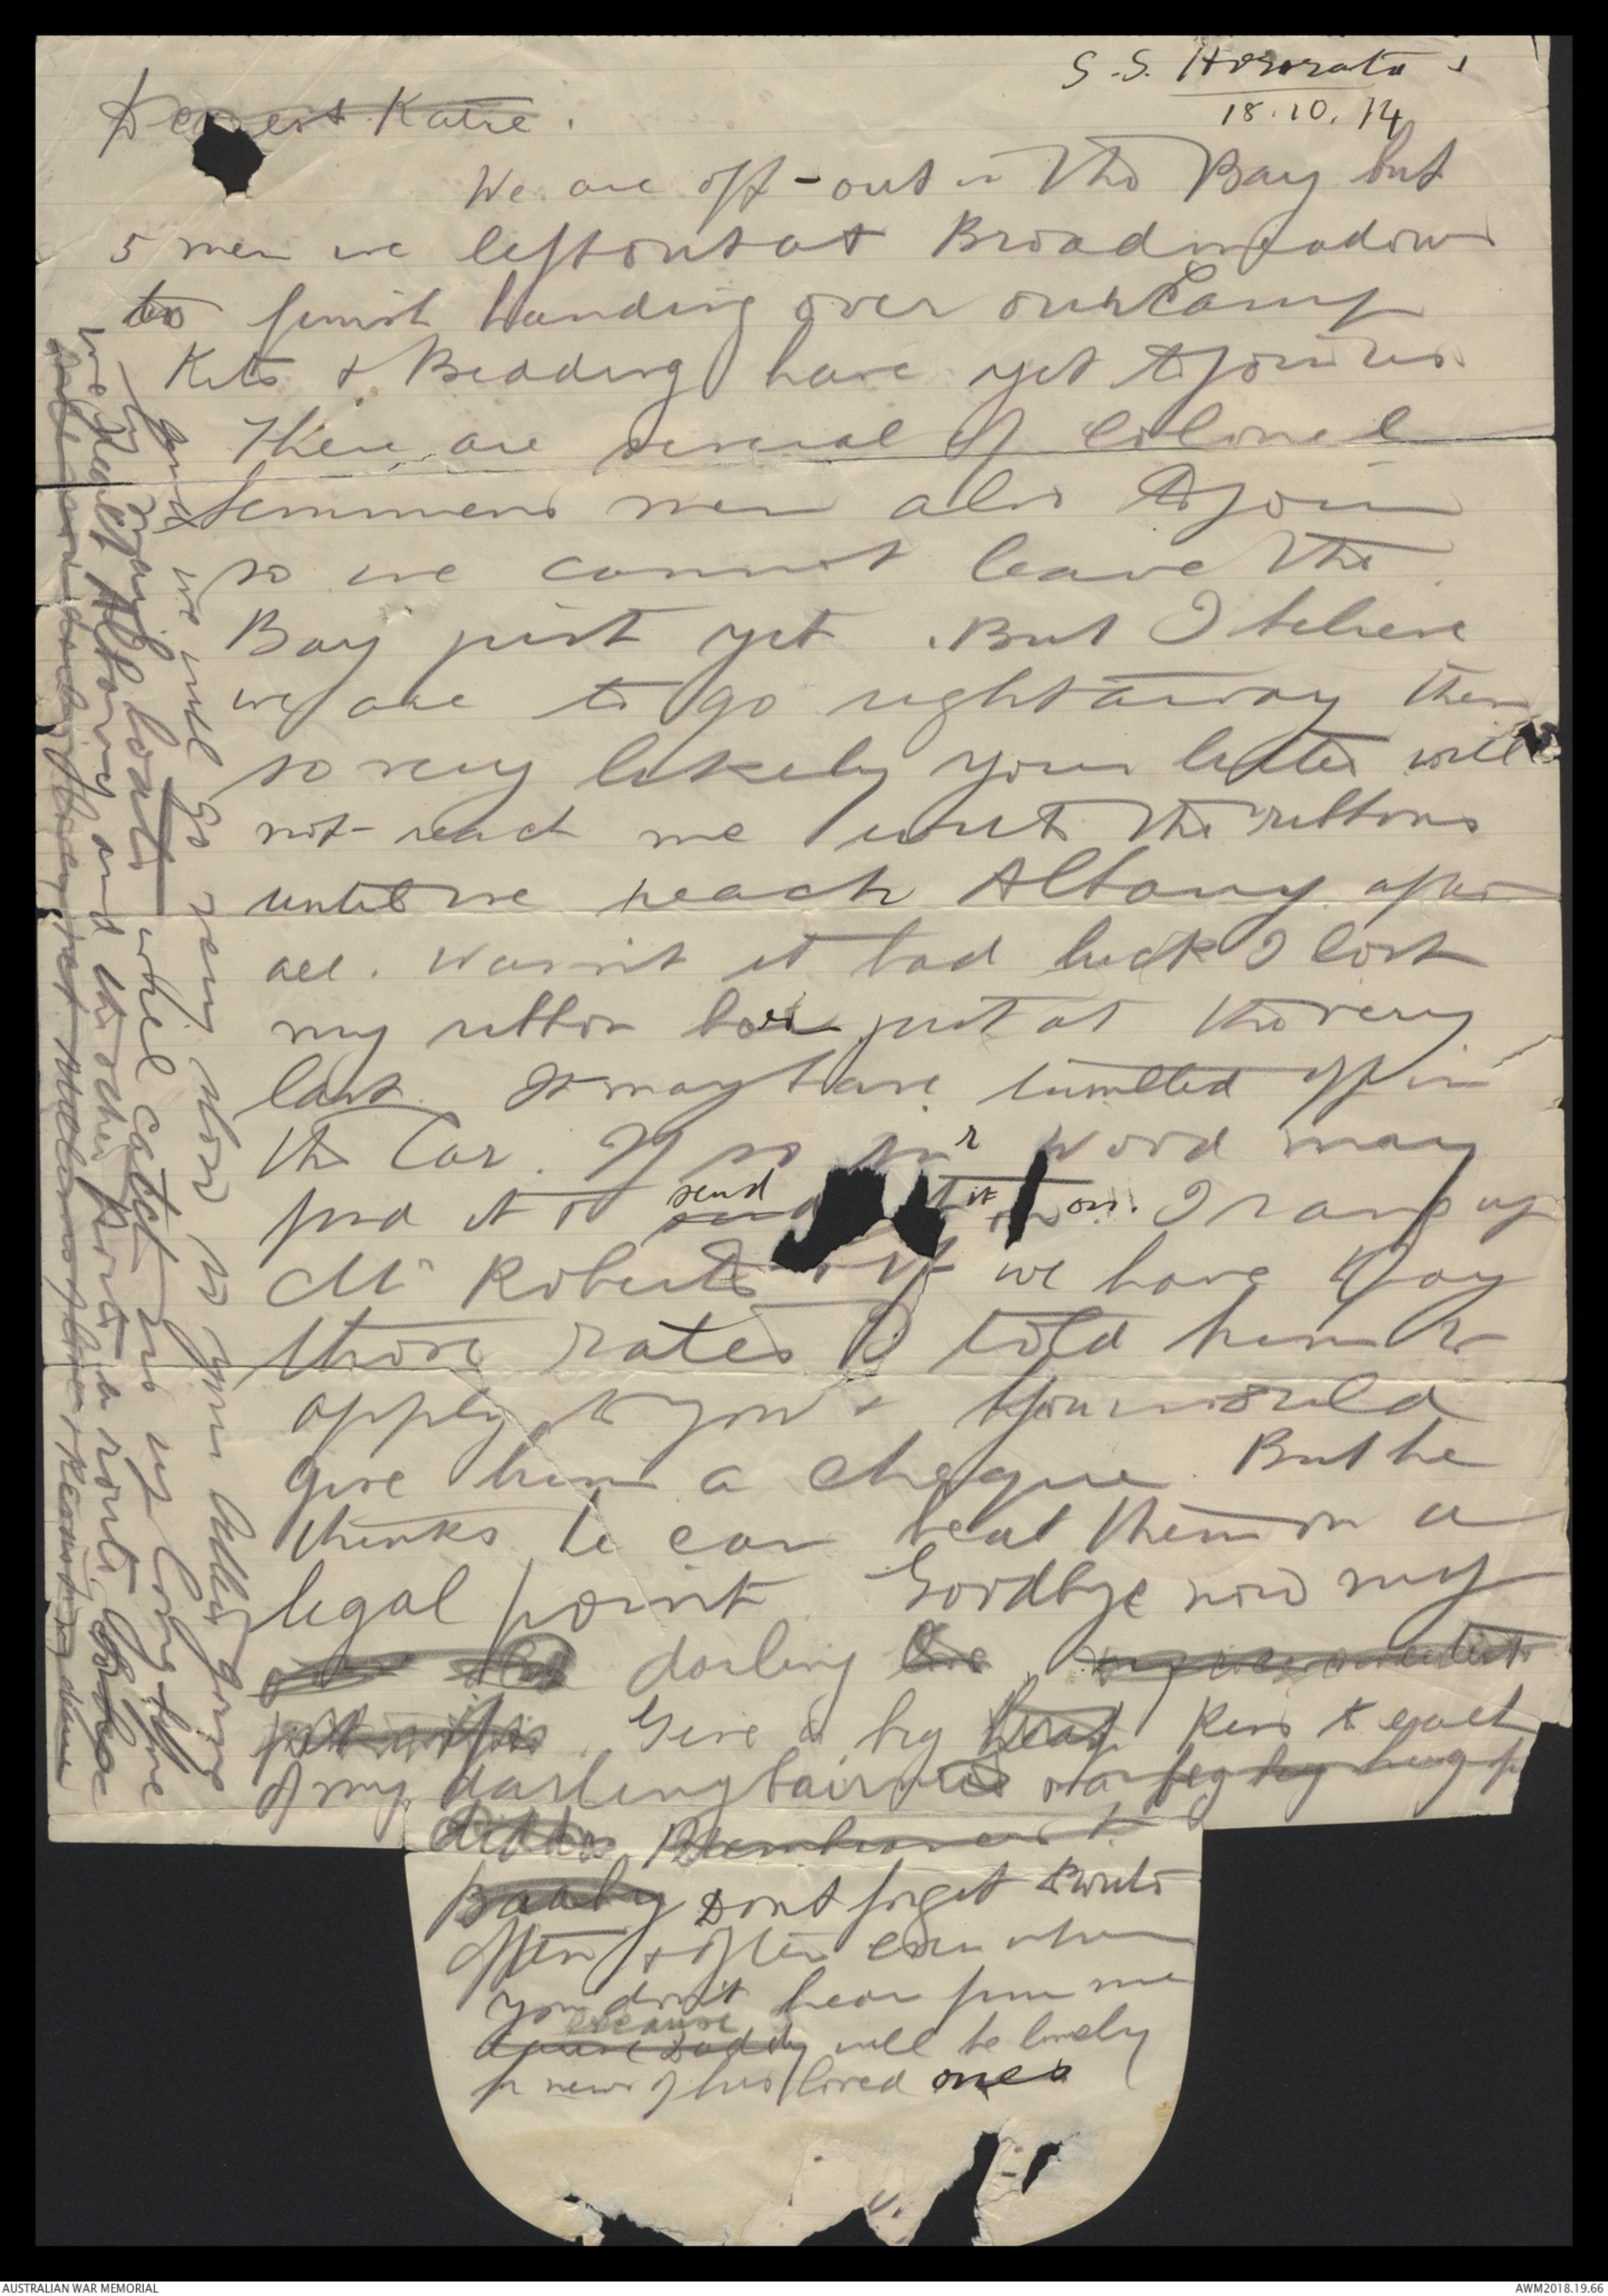 S.S. Hororata
18.10.14
Dearest Katie.
We are off - out in the Bay but
5 men we left out at Broadmeadows
to finish handing over our Camp
Kits & Bedding have yet to join us.
There are several of Colonel
Semmens men also to join
so we cannot leave the
Bay just yet. But I believe
we are to go right away then
so very likely your letter will
not reach me with the ribbons
until we reach Albany after
all. Wasn't it bad luck I lost
my ribbon just at the very
last. It may have tumbled off in
the Car. If so Mr Wood may
find it & send it on. I rang up
Mr Roberts if we have to pay
those rates I told him to
apply to you & you would
give him a cheque. But he
thinks he can beat them on a
legal point. Goodbye now my
darling
Give a big kiss to each
of my darling bairnies & a big big hug
Dont forget to write
often & often even when
you don't hear from me
because Daddy will be lonely
for news of his loved ones
and we will go very slow so your letters going
by mail boats will catch us up long before
we reach Albany and the other ports en route.
AUSTRALIAN WAR MEMORIAL
AWM2018.19.66